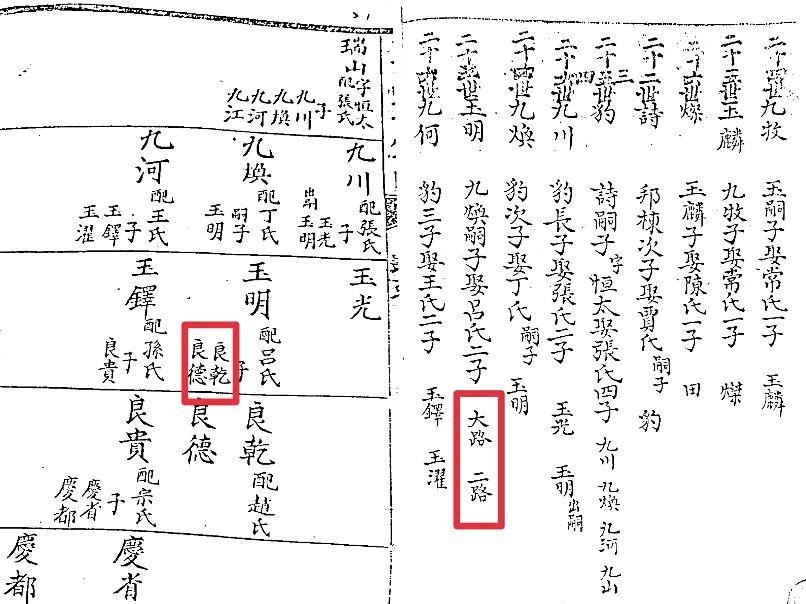 二十四世九牧 玉嗣子娶常氏一子 玉麟
二十五世玉麟 九牧子娶常氏一子 燦
二十六世燦 玉麟子娶陳氏一子 田
二十二世詩 邦棟次子娶賈氏嗣子 豹
世豹 詩嗣子字恒太娶張氏四子 九川 九煥 九河 九山
世九川 豹長子娶張氏二子 玉光 玉明出嗣
二十四世九煥 豹次子娶丁氏嗣子 玉明
世玉明 九煥嗣子娶呂氏二子 大路 二路
世九何 豹三子娶王氏二子 玉鐸 玉濯
瑞山字恒太
配張氏
子
九川
九煥
九河
九江
九川
配張氏
子
玉光
玉明
出嗣
九煥
配丁氏
嗣子
玉明
九河
配王氏
子
玉鐸
玉濯
玉光
玉明
配呂氏
子
良乾
良德
玉鐸
配孫氏
子
良貴
良乾
配趙氏
良德
良貴
配宗氏
子
慶省
慶都
慶省
慶都